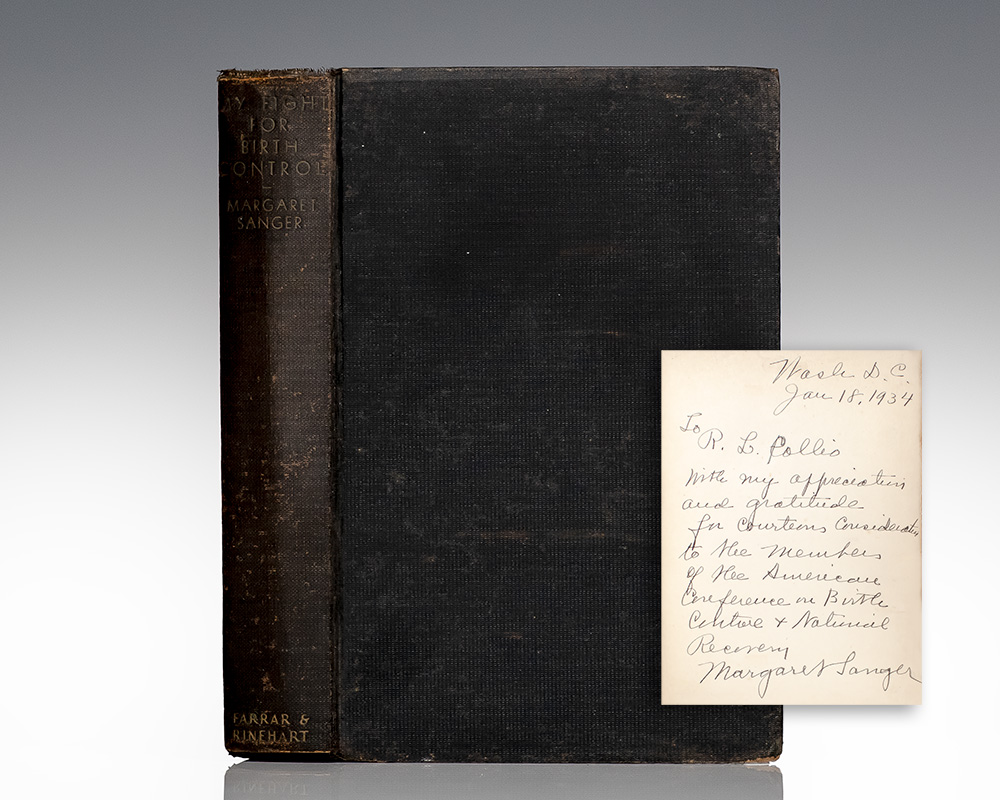 MY FIGHT
FOR
BIRTH
CONTROL
MARGARET
SANGER
FARRAR &
RINEHART
Wash D.C.
Jan 18, 1934
To
R. L. Pollio
With my appreciation
and gratitude
for courteous consideration
to the members
of the American
Conference on Birth
Control + National
Recovery
Margaret Sanger